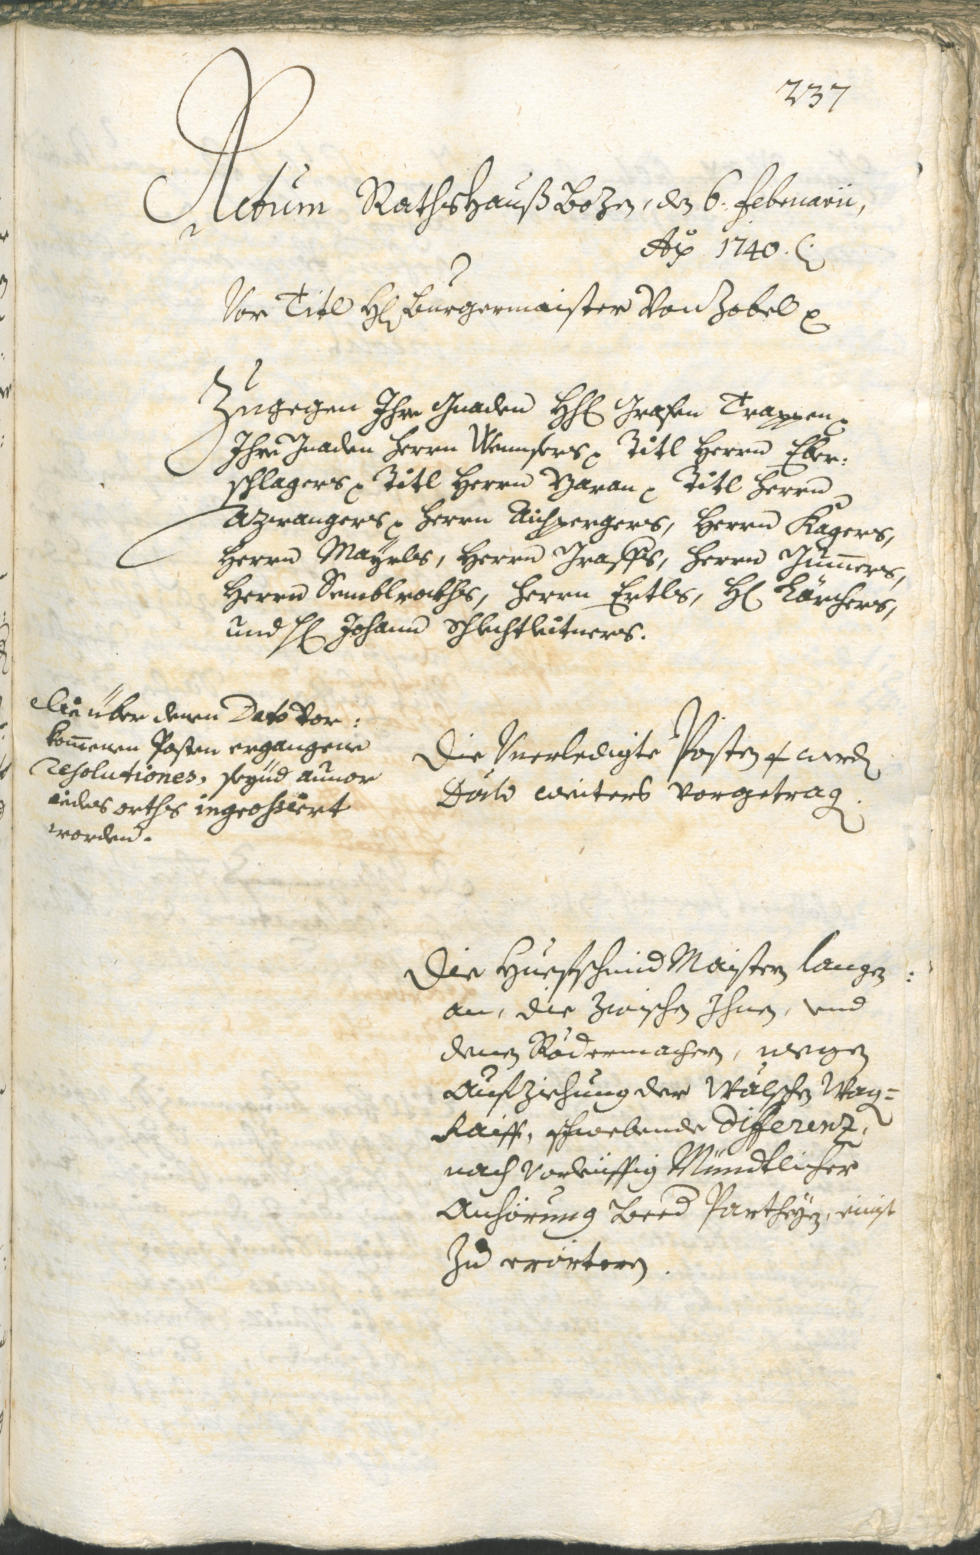 237
Actum Rathshauß Bozen, den 6. Februarii,
Aō 1740.
Vor Titl Hℓ Burgermaister Von Zobel
Zugegen Ihro Gnaden HHℓ Grafen Trappen
Ihro Gnaden Herrn Wennsers, Titl Herrn Eber:
schlagers, Titl Herrn Zaran, Titl Herrn
Azwangers, Herrn Aichpergers, Herrn Kagers,
Herrn Mayrls, Herrn Graffs, Herrn Gum̄ers,
Herrn Semblrockhs, Herrn Ertls, Hℓ Kärchers,
und Hℓ Johann Schlechtleitners.
Die über denen Dato vor:
kom̄enen Posten ergangene
resolutiones, seynd
iedes orths ingrohsiert
worden.
Die Unerledigte Posten werdn
Dato weiters vorgetragn.
Die Huefschmid Maister langen
an, die zwischen Ihnen, und
denen Rädermachern, wegen
Aufziehung der Wälschen Wag=
Raiff, schwebende Differenz,
nach vorleiffig Mündtlicher
Anhörung beed Partheyen, einist
zu erörtern.